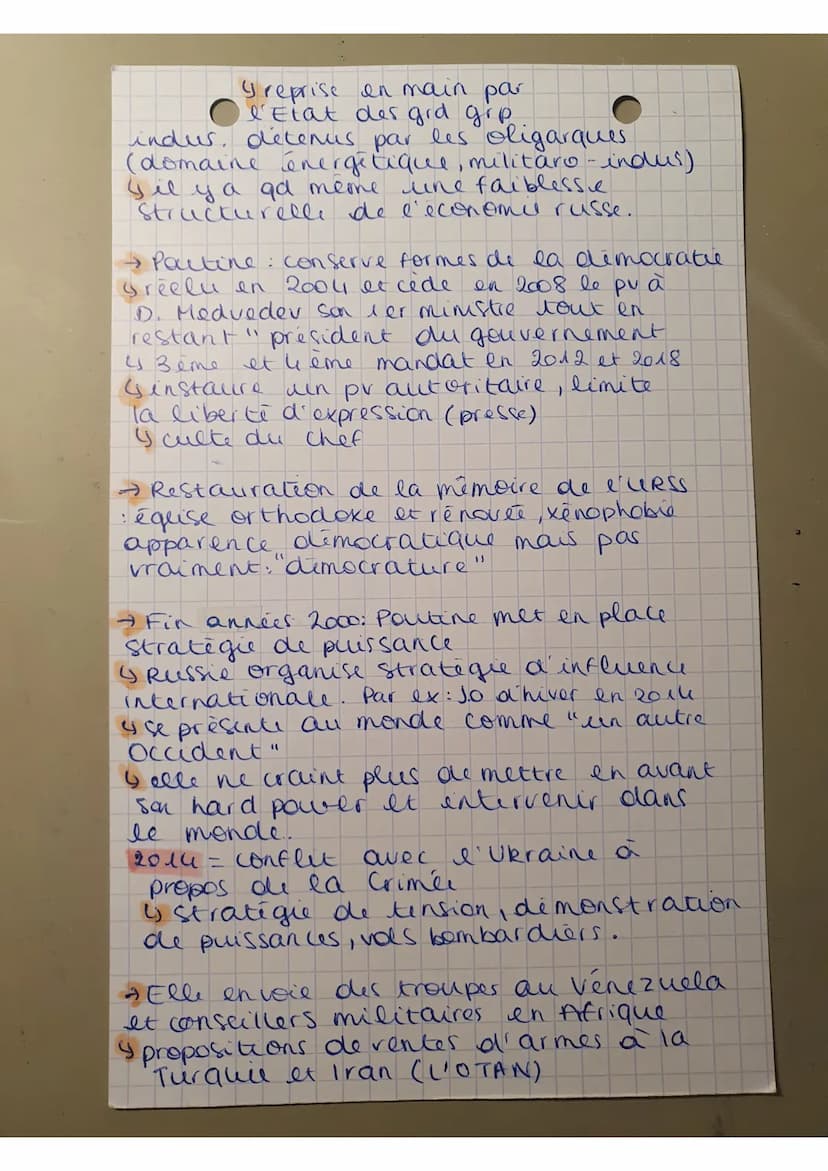 ↳ reprise en main par
l'Etat des grd grp
indus. détenus par les oligarques
(domaine énergétique, militaro-indus)
↳ il y a qd même une faiblesse
structurelle de l'économie russe.
→ Poutine : conserve formes de la démocratie
↳ réélu en 2004 et cède en 2008 le pv à
D. Medvedev son 1er ministre tout en
restant " président du gouvernement
↳ 3ème et 4ème mandat en 2012 et 2018
↳ instaure un pv autoritaire, limite
la liberté d'expression (presse)
↳ culte du chef
→ Restauration de la mémoire de l'URSS
: église orthodoxe et rénovée, xénophobie
apparence démocratique mais pas
vraiment : "démocrature"
→ Fin années 2000 : Poutine met en place
stratégie de puissance
↳ Russie organise stratégie d'influence
internationale. Par ex : JO d'hiver en 2014
↳ se présente au monde comme "un autre
Occident"
↳ elle ne craint plus de mettre en avant
son hard power et intervenir dans
le monde.
2014 = conflit avec l'Ukraine à
propos de la Crimée
↳ stratégie de tension, démonstration
de puissances, vols bombardiers.
→ Elle envoie des troupes au Vénézuela
et conseillers militaires en Afrique
↳ propositions de ventes d'armes à la
Turquie et Iran (L'OTAN)